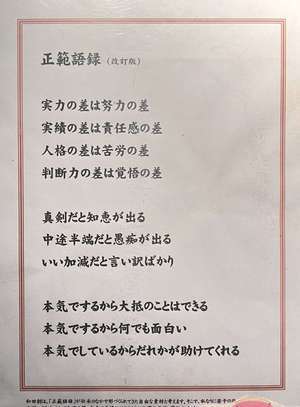 正範語録（改訂版）
実力の差は努力の差
実績の差は責任感の差
人格の差は苦労の差
判断力の差は覚悟の差
真剣だと知恵が出る
中途半端だと愚痴が出る
いい加減だと言い訳ばかり
本気でするから大抵のことはできる
本気でするから何でも面白い
本気でしているからだれかが助けてくれる